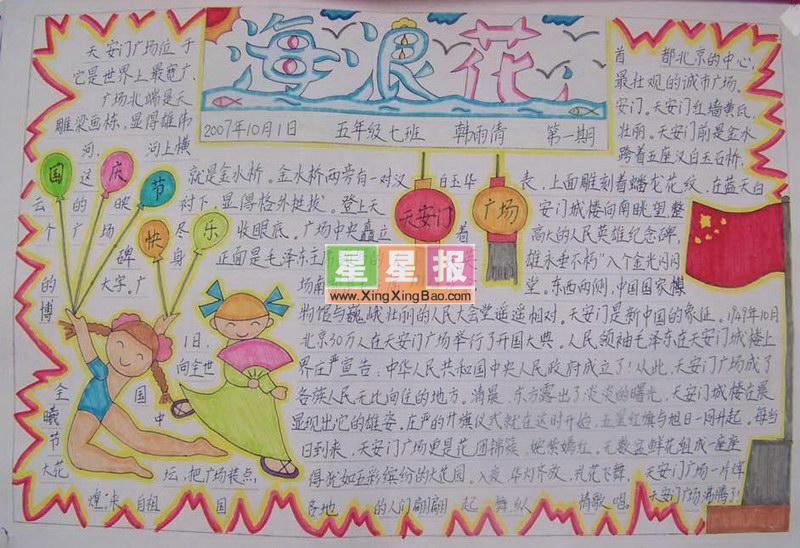 海浪花
2007年10月1日 五年级七班 韩雨倩 第一期
国庆节
快乐
天安门 广场
天安门广场位于 首都北京的中心,
它是世界上最宽广、 最壮观的城市广场。
广场北端是天 安门。天安门红墙黄瓦,
雕梁画栋,显得雄伟 壮丽。天安门前是金水
河, 河上横 跨着五座汉白玉石桥,
这 就是金水桥。金水桥两旁有一对汉 白玉华 表,上面雕刻着蟠龙花纹,在蓝天白
云 的 映 衬下,显得格外挺拔。登上天 安门城楼向南眺望,整
个 广场 尽 收眼底。广场中央矗立 着 高大的人民英雄纪念碑,
碑 身 正面是毛泽东主席 的 雄永垂不朽"八个金光闪闪
的 大字。广 场南 堂。东西两侧,中国国家博
物馆与巍峨壮丽的人民大会堂遥遥相对。天安门是新中国的象征。1949年10月
1日, 北京30万人在天安门广场举行了开国大典。人民领袖毛泽东在天安门城楼上
向全世 界庄严宣告,中华人民共和国中央人民政府成立了!从此,天安门广场成了
全 国 各族人民无比向往的地方。清晨,东方露出了淡淡的曙光,天安门城楼在晨
曦 中 显现出它的雄姿。庄严的升旗仪式就在这时开始,五星红旗与旭日一同升起。每当
节 日到来,天安门广场更是花团锦簇,姹紫嫣红。无数盆鲜花组成一座座
大花 坛,把广场装点 得犹如五彩缤纷的大花园。入夜,华灯齐放,礼花飞舞,天安门广场一片辉
煌,来自祖 国 各地 的人们翩翩 起 舞,纵 情歌 唱。 天安门广场沸腾了!
星星报
www.XingXingBao.com